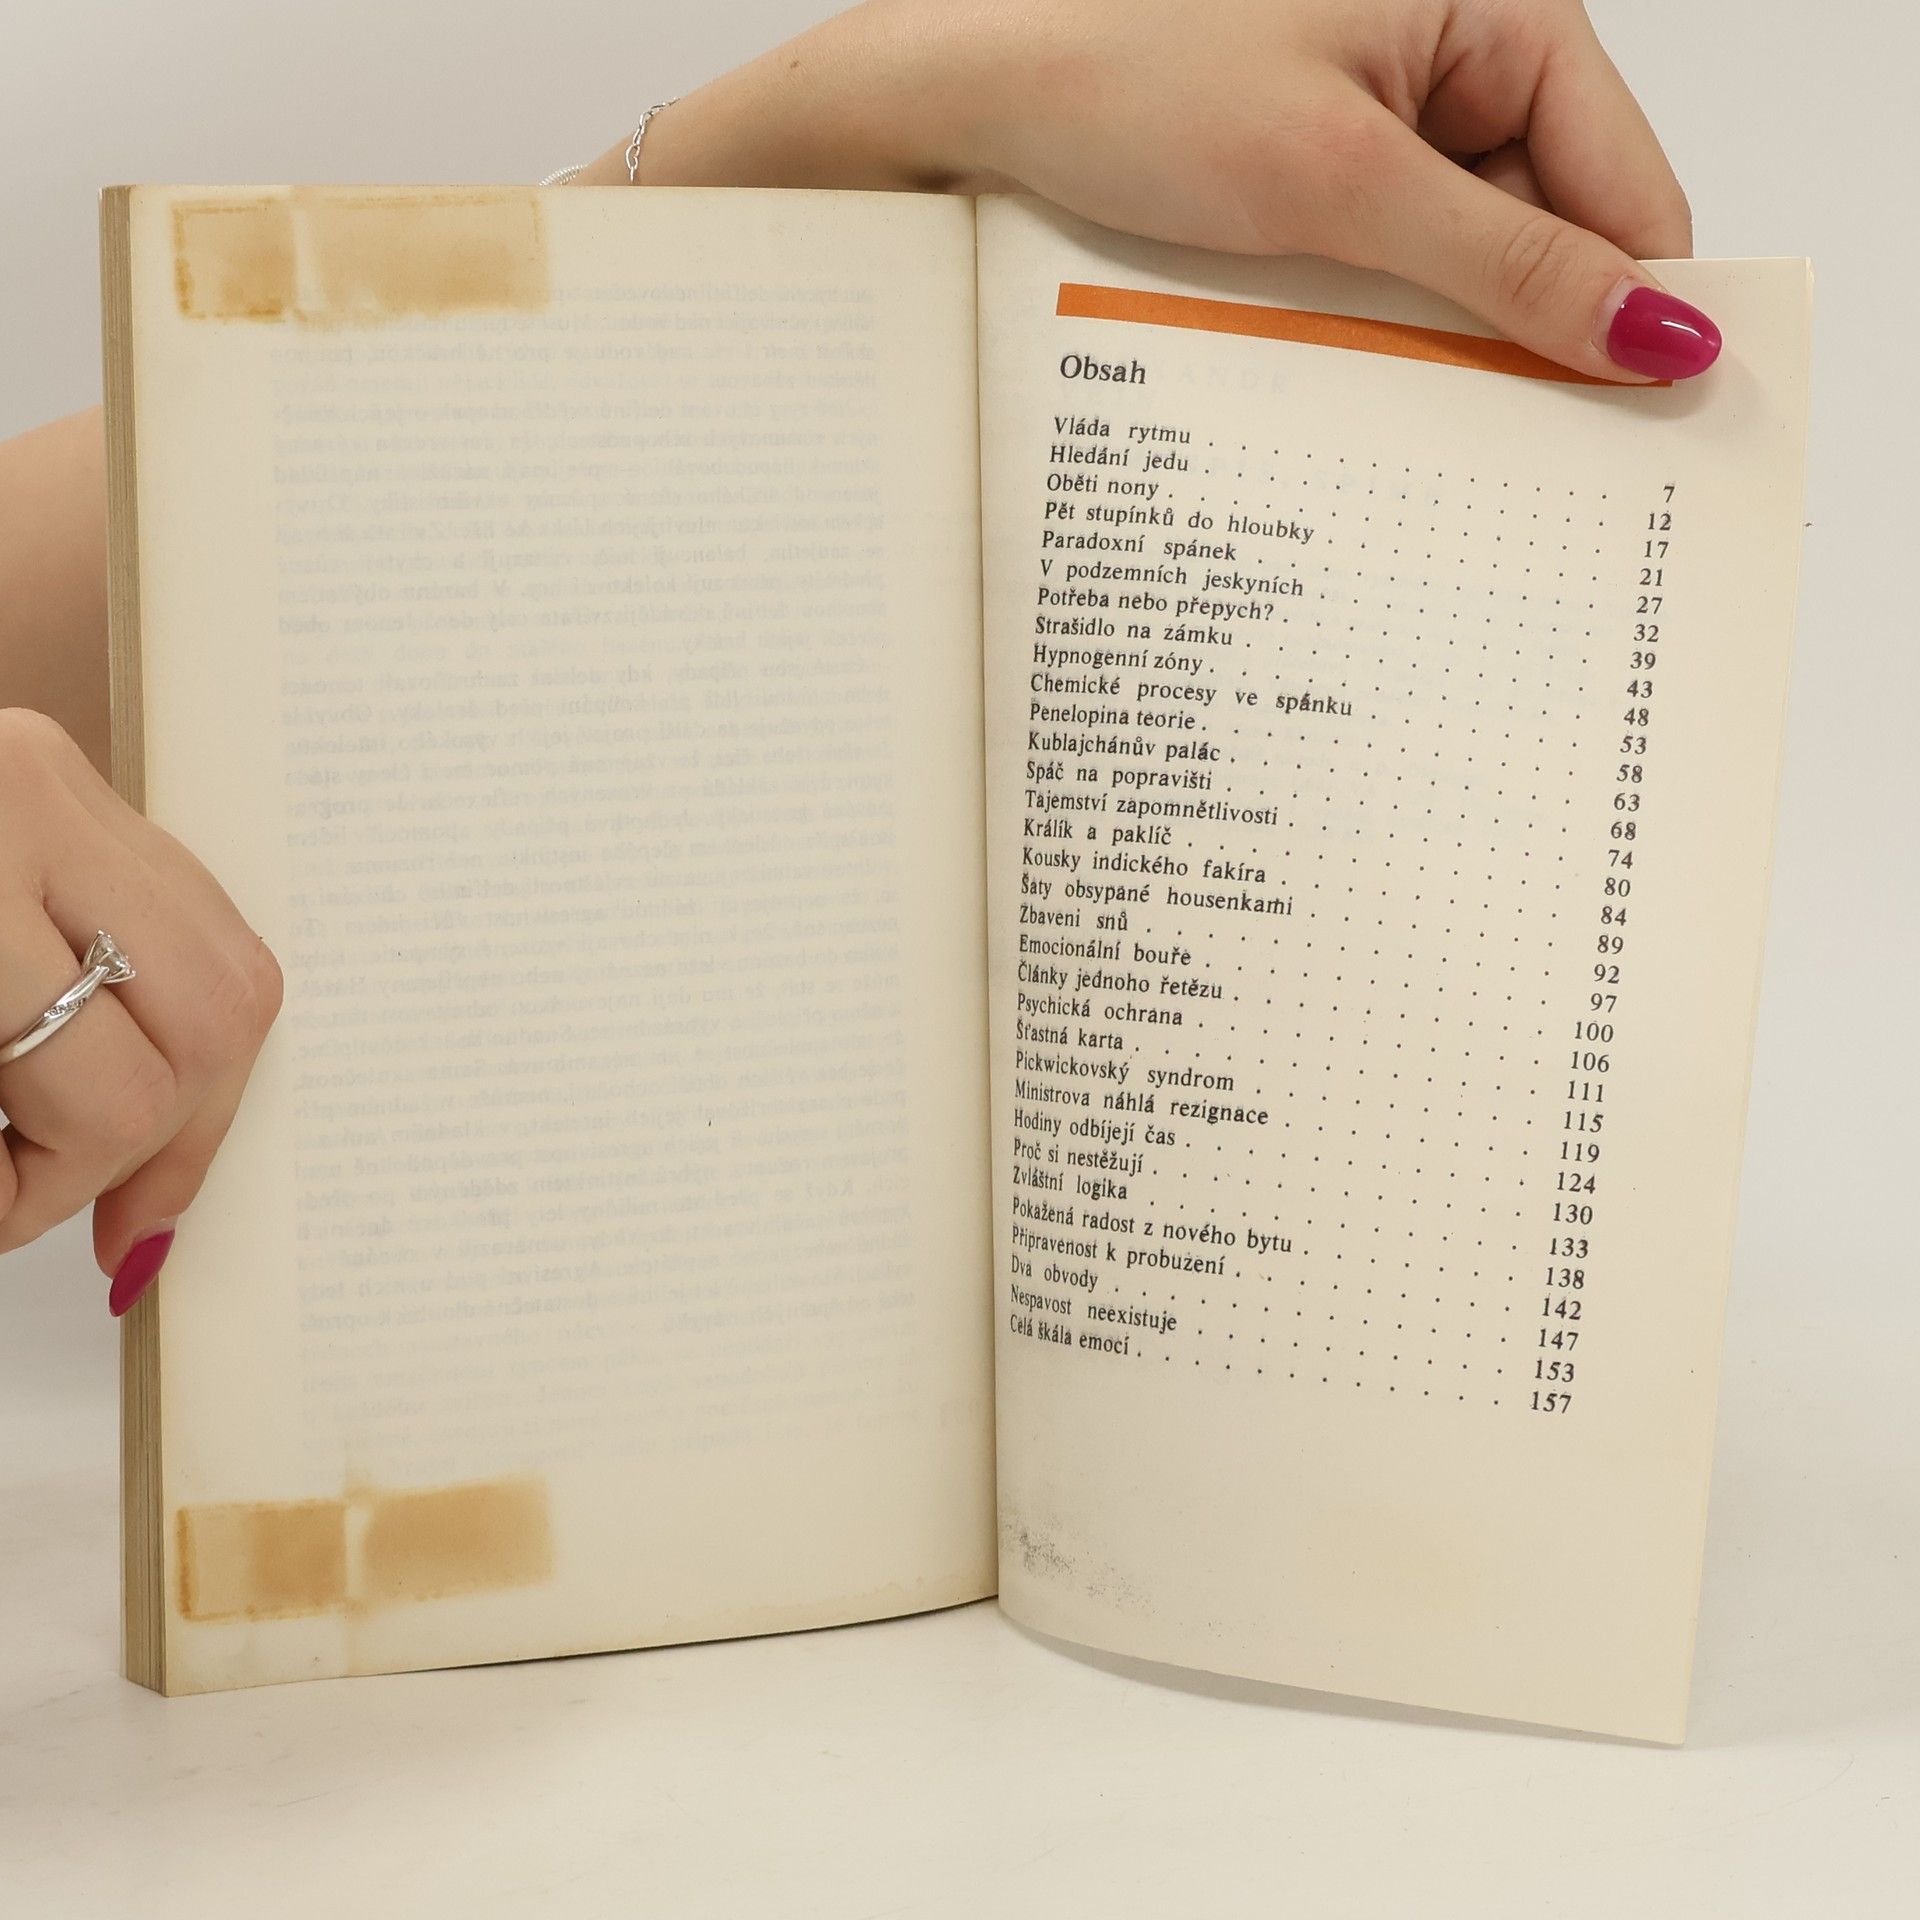 Obsah
Vláda rytmu . . . . . . . . . . . . . 7
Hledání jedu . . . . . . . . . . . . . 12
Oběti nony . . . . . . . . . . . . . . 17
Pět stupínků do hloubky . . . . . . . . . 21
Paradoxní spánek . . . . . . . . . . . 27
V podzemních jeskyních . . . . . . . . . 32
Potřeba nebo přepych? . . . . . . . . . . 39
Strašidlo na zámku . . . . . . . . . . . 43
Hypnogenní zóny . . . . . . . . . . . . 48
Chemické procesy ve spánku . . . . . . . 53
Penelopina teorie . . . . . . . . . . . . 58
Kublajchánův palác . . . . . . . . . . . 63
Spáč na popravišti . . . . . . . . . . . 68
Tajemství zapomnětlivosti . . . . . . . . . 74
Králík a paklíč . . . . . . . . . . . . 80
Kousky indického fakíra . . . . . . . . . 84
Šaty obsypané housenkami . . . . . . . . 89
Zbaveni snů . . . . . . . . . . . . . 92
Emocionální bouře . . . . . . . . . . . 97
Články jednoho řetězu . . . . . . . . . . 100
Psychická ochrana . . . . . . . . . . . 106
Šťastná karta . . . . . . . . . . . . . 111
Pickwickovský syndrom . . . . . . . . . 115
Ministrova náhlá rezignace . . . . . . . . 119
Hodiny odbíjejí čas . . . . . . . . . . . 124
Proč si nestěžují . . . . . . . . . . . . 130
Zvláštní logika . . . . . . . . . . . . 133
Pokažená radost z nového bytu . . . . . . . 138
Připravenost k probuzení . . . . . . . . . 142
Dva obvody . . . . . . . . . . . . . 147
Nespavost neexistuje . . . . . . . . . . 153
Celá škála emocí . . . . . . . . . . . . 157